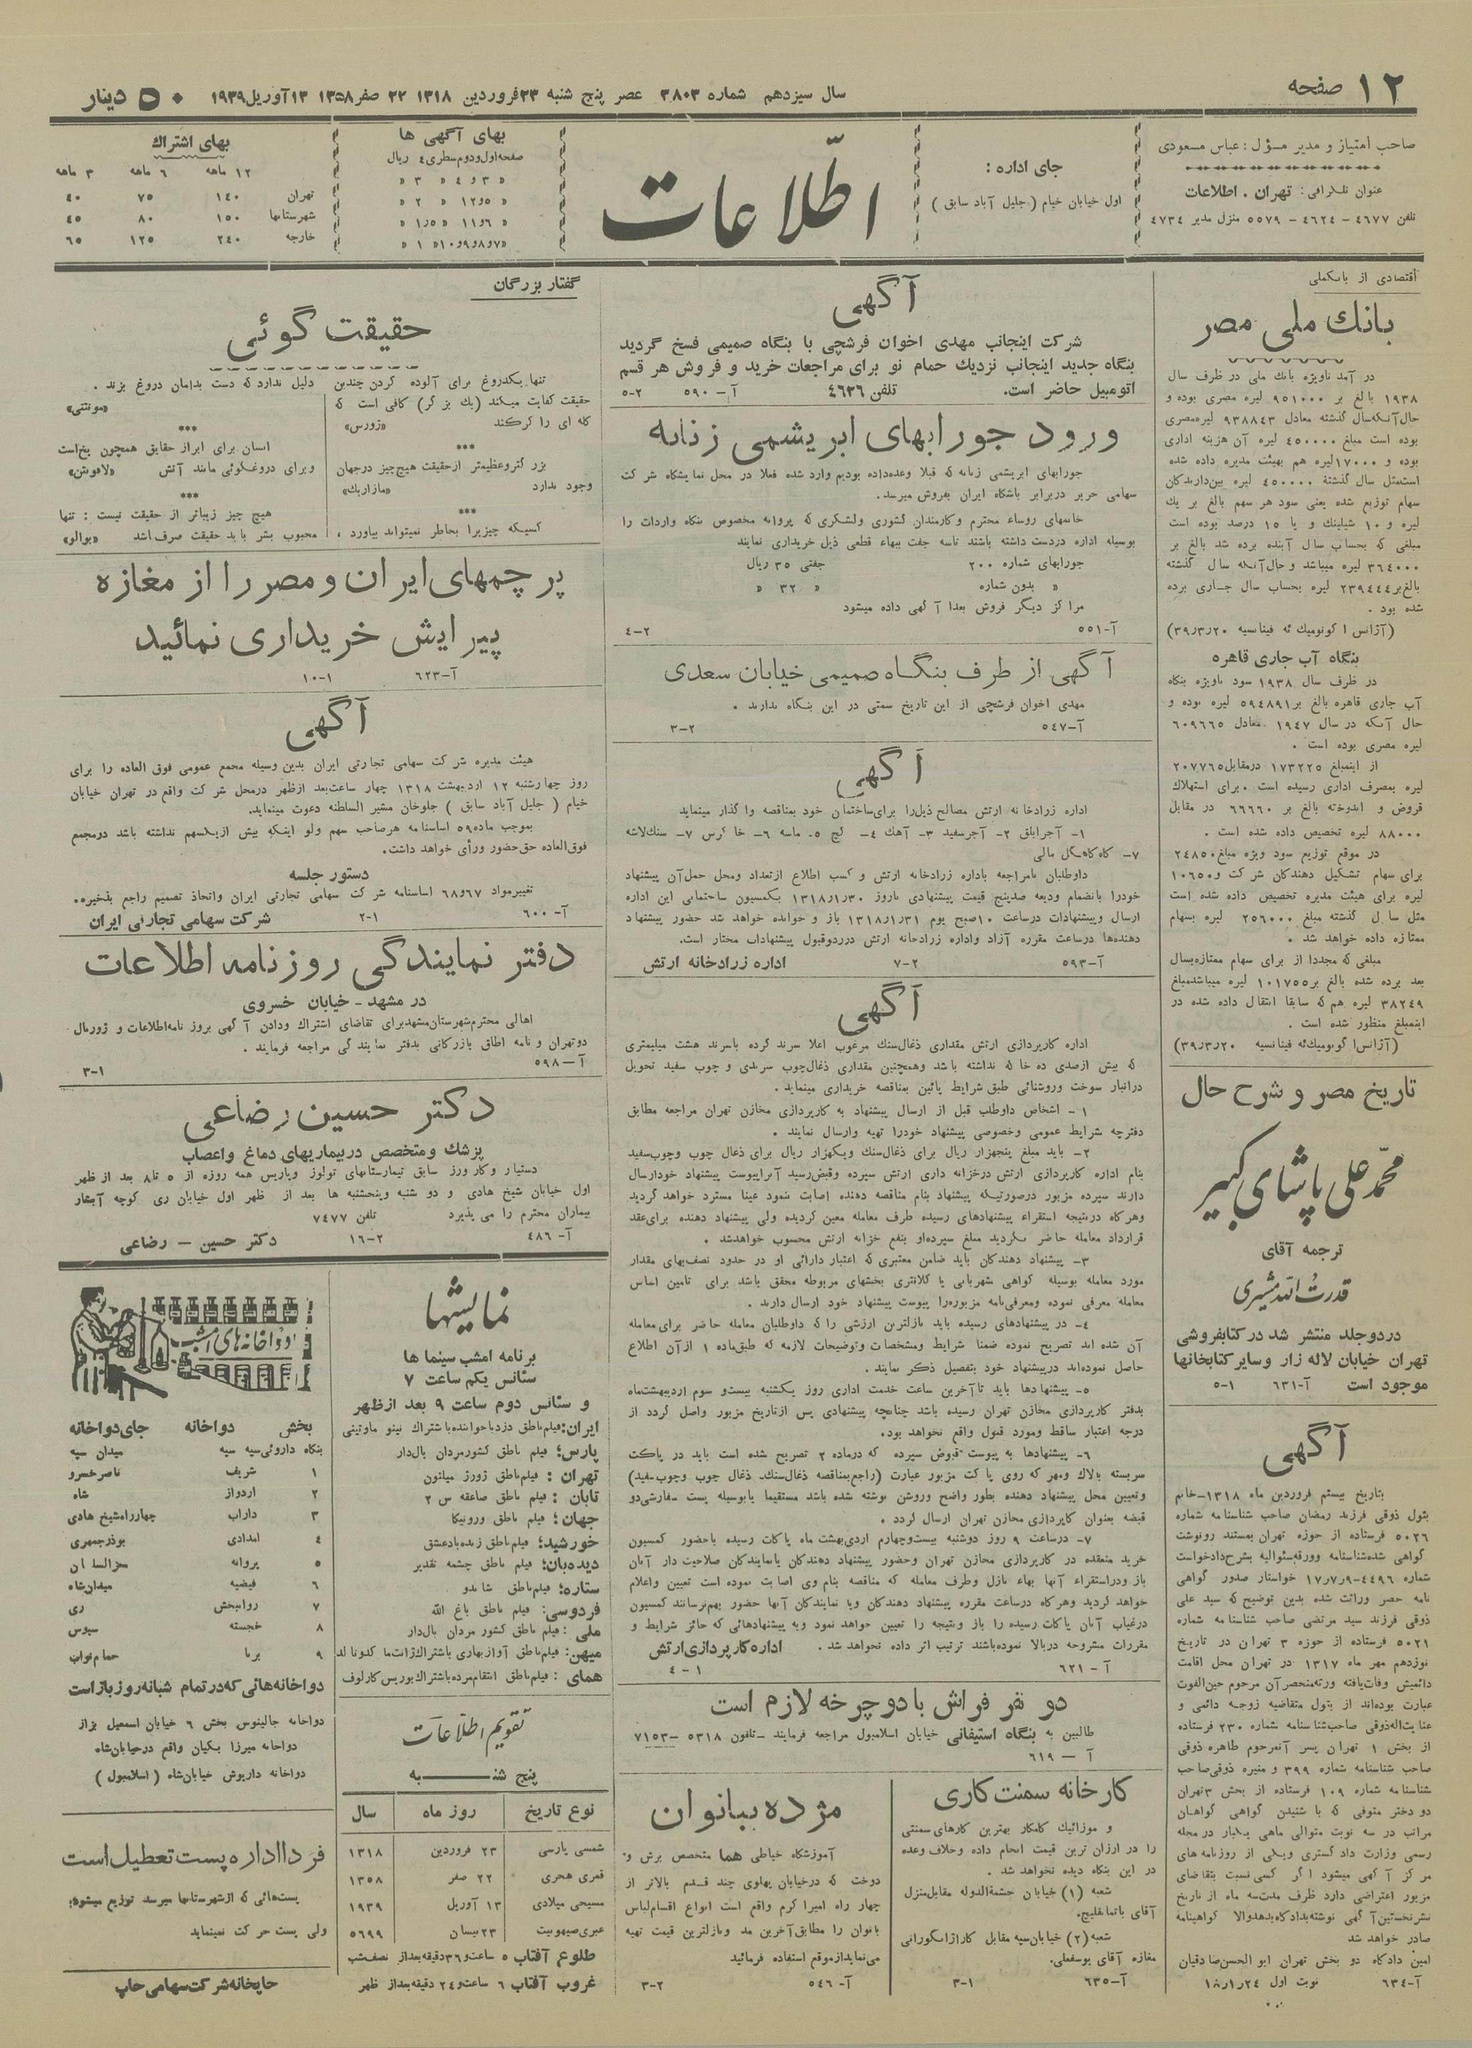 ۱۲ صفحه
سال سیزدهم شماره ۳۸۰۳ عصر پنج شنبه ۲۳ فروردین ۱۳۱۸ ۲۲ صفر ۱۳۵۸ ۱۳ آوریل ۱۹۳۹
۵۰ دینار
صاحب امتیاز و مدیر مسؤل : عباس مسعودی
عنوان تلگرافی : تهران . اطلاعات
تلفن ۴۶۷۷ - ۴۶۲۴ - ۵۵۷۹ منزل مدیر ۴۷۳۴
جای اداره :
اول خیابان خیام ( جلیل آباد سابق )
اطلاعات
بهای آگهی ها
صفحه اول و دوم سطری ۴ ریال
« ۳ و ۴ « ۳ «
« ۵ و ۱۲ « ۲ «
« ۶ و ۱۱ « ۱٫۵ «
« ۷ و ۸ و ۹ و ۱۰ « ۱ «
بهای اشتراك
۱۲ ماهه ۶ ماهه ۳ ماهه
تهران ۱۴۰ ۷۵ ۴۰
شهرستانها ۱۵۰ ۸۰ ۴۵
خارجه ۲۴۰ ۱۲۵ ۶۵
بانك ملی مصر
در آمد ناویژه بانك ملی در ظرف سال
۱۹۳۸ بالغ بر ۹۵۱۰۰۰ لیره مصری بوده و
حال آنکه سال گذشته معادل ۹۳۸۸۴۳ لیره مصری
بوده است مبلغ ۴۵۰۰۰۰ لیره آن هزینه اداری
بوده و ۱۷۰۰۰ لیره هم بهیئت مدیره داده شده
است مثل سال گذشته ۴۵۰۰۰۰ لیره بین دارندگان
سهام توزیع شده یعنی سود هر سهم بالغ بر یك
لیره و ۱۰ شیلینك و یا ۱۵ درصد بوده است
مبلغی که بحساب سال آینده برده شد بالغ بر
۳۶۴۰۰۰ لیره میباشد و حال آنکه سال گذشته
بالغ بر ۲۳۹۴۴۴ لیره بحساب سال جاری برده
شده بود .
(آژانس اکونومیك ئه فیناسیه ۳۹٫۳٫۲۰)
بنگاه آب جاری قاهره
در ظرف سال ۱۹۳۸ سود ناویژه بنگاه
آب جاری قاهره بالغ بر ۵۹۴۸۹۱ لیره بوده و
حال آنکه در سال ۱۹۴۷ معادل ۶۰۹۶۶۵
لیره مصری بوده است .
از اینمبلغ ۱۷۳۲۲۵ درمقابل ۲۰۷۷۶۵
لیره بمصرف اداری رسیده است . برای استهلاك
قروض و اندوخته بالغ بر ۶۶۶۶۰ در مقابل
۸۸۰۰۰ لیره تخصیص داده شده است .
در موقع توزیع سود ویژه مبلغ ۲۴۸۵۰
برای سهام تشکیل دهندگان شرکت و ۱۰۶۵۰
لیره برای هیئت مدیره تخصیص داده شده است
مثل سال گذشته مبلغ ۲۵۶۰۰۰ لیره بسهام
ممتازه داده خواهد شد .
مبلغی که مجددا از برای سهام ممتازه بسال
بعد برده شده بالغ بر ۱۰۱۷۵۵ لیره میباشد مبلغ
۳۸۲۴۹ لیره هم که سابقا انتقال داده شده در
اینمبلغ منظور شده است .
(آژانس اکونومیك ئه فیناسیه ۳۹٫۳٫۲۰)
تاریخ مصر و شرح حال
محمد علی پاشای کبیر
ترجمه آقای
قدرت الله مشیری
در دو جلد منتشر شد در کتابفروشی
تهران خیابان لاله زار و سایر کتابخانها
موجود است آ-۶۳۱ ۱-۵
آگهی
بتاریخ بیستم فروردین ماه ۱۳۱۸ - خانم
بتول ذوقی فرزند رمضان صاحب شناسنامه شماره
۵۰۲۶ فرستاده از حوزه تهران بمستند رونوشت
گواهی شده شناسنامه و ورقه سئوالیه بشرح دادخواست
شماره ۴۴۹۶-۱۷٫۷٫۹ خواستار صدور گواهی
نامه حصر وراثت شده بدین توضیح که سید علی
ذوقی فرزند سید مرتضی صاحب شناسنامه شماره
۵۰۲۱ فرستاده از حوزه ۳ تهران در تاریخ
نوزدهم مهر ماه ۱۳۱۷ در تهران محل اقامت
دائمیش وفات یافته ورثه منحصر آن مرحوم حین الفوت
عبارت بوده اند از بتول متقاضیه زوجه دائمی و
عنایت اله ذوقی صاحب شناسنامه شماره ۲۳۰ فرستاده
از بخش ۱ تهران پسر آنمرحوم طاهره ذوقی
صاحب شناسنامه شماره ۳۹۹ و منیره ذوقی صاحب
شناسنامه شماره ۱۰۹ فرستاده از بخش ۳ تهران
دو دختر متوفی که با شنیدن گواهی گواهان
مراتب در سه نوبت متوالی ماهی یکبار در مجله
رسمی وزارت دادگستری و یکی از روزنامه های
مرکز آگهی میشود اگر کسی نسبت بتقاضای
مزبور اعتراضی دارد ظرف مدت سه ماه از تاریخ
نشر نخستین آگهی نوشته بدادگاه بدهد والا گواهینامه
صادر خواهد شد
امین دادگاه دو بخش تهران ابوالحسن صادقیان
آ-۶۳۴ نوبت اول ۱۸٫۱٫۲۴
آگهی
شرکت اینجانب مهدی اخوان فرشچی با بنگاه صمیمی فسخ گردید
بنگاه جدید اینجانب نزدیك حمام نو برای مراجعات خرید و فروش هر قسم
اتومبیل حاضر است. تلفن ۴۶۳۶ آ-۵۹۰ ۲-۵
ورود جورابهای ابریشمی زنانه
جورابهای ابریشمی زنانه که قبلا وعده داده بودیم وارد شده فعلا در محل نمایشگاه شرکت
سهامی حریر در برابر باشگاه ایران بفروش میرسد.
خانمهای روساء محترم و کارمندان کشوری و لشگری که پروانه مخصوص بنگاه واردات را
بوسیله اداره در دست داشته باشند تا سه جفت ببهاء قطعی ذیل خریداری نمایند
جورابهای شماره ۲۰۰ جفتی ۳۵ ریال
« بدون شماره « ۳۲ «
مراکز دیگر فروش بعدا آگهی داده میشود
آ-۵۵۱ ۲-۴
آگهی از طرف بنگاه صمیمی خیابان سعدی
مهدی اخوان فرشچی از این تاریخ سمتی در این بنگاه ندارند .
آ-۵۴۷ ۲-۳
آگهی
اداره زرادخانه ارتش مصالح ذیل را برای ساختمان خود بمناقصه واگذار مینماید
۱- آجر ابلق ۲- آجر سفید ۳- آهك ۴- گچ ۵- ماسه ۶- خاك رس ۷- سنك لاشه
۷- کاه کاهگل مالی
داوطلبان با مراجعه باداره زرادخانه ارتش و کسب اطلاع از تعداد و محل حمل آن پیشنهاد
خود را بانضمام ودیعه صدپنج قیمت پیشنهادی تا روز ۱۳۱۸٫۱٫۳۰ بکمسیون ساختمانی این اداره
ارسال و پیشنهادات در ساعت ۱۰ صبح یوم ۱۳۱۸٫۱٫۳۱ باز و خوانده خواهد شد حضور پیشنهاد
دهنده ها در ساعت مقرره آزاد و اداره زرادخانه ارتش در رد و قبول پیشنهادات مختار است.
آ-۵۹۳ ۲-۷ اداره زرادخانه ارتش
آگهی
اداره کارپردازی ارتش مقداری ذغال سنك مرغوب اعلا سرند کرده با سرند هشت میلیمتری
که بیش از صدی ده خاکه نداشته باشد و همچنین مقداری ذغال چوب سرندی و چوب سفید تحویل
در انبار سوخت و روشنائی طبق شرایط پائین بمناقصه خریداری مینماید.
۱- اشخاص داوطلب قبل از ارسال پیشنهاد به کارپردازی مخازن تهران مراجعه مطابق
دفترچه شرایط عمومی و خصوصی پیشنهاد خود را تهیه و ارسال نمایند .
۲- باید مبلغ پنجهزار ریال برای ذغال سنك و یکهزار ریال برای ذغال چوب و چوب سفید
بنام اداره کارپردازی ارتش در خزانه داری ارتش سپرده و قبض رسید آنرا بپیوست پیشنهاد خود ارسال
دارند سپرده مزبور در صورتیکه پیشنهاد بنام مناقصه دهنده اصابت ننمود عینا مسترد خواهد گردید
و هرگاه در نتیجه استقراء پیشنهادهای رسیده طرف معامله معین گردیده ولی پیشنهاد دهنده برای عقد
قرارداد معامله حاضر نگردید مبلغ سپرده او بنفع خزانه ارتش محسوب خواهد شد .
۳- پیشنهاد دهندگان باید ضامن معتبری که اعتبار دارائی او در حدود نصف بهای مقدار
مورد معامله بوسیله گواهی شهربانی یا کلانتری بخشهای مربوطه محقق باشد برای تامین اساس
معامله معرفی نموده و معرفی نامه مزبوره را پیوست پیشنهاد خود ارسال دارند .
۴- در پیشنهادهای رسیده باید نازلترین ارزشی را که داوطلبان معامله حاضر برای معامله
آن شده اند تصریح نموده ضمنا شرایط و مشخصات و توضیحات لازمه که طبق ماده ۱ از آن اطلاع
حاصل نموده اند در پیشنهاد خود بتفصیل ذکر نمایند .
۵- پیشنهادها باید تا آخرین ساعت خدمت اداری روز یکشنبه بیست و سوم اردیبهشت ماه
بدفتر کارپردازی مخازن تهران رسیده باشد چنانچه پیشنهادی پس از تاریخ مزبور واصل گردد از
درجه اعتبار ساقط و مورد قبول واقع نخواهد بود.
۶- پیشنهادها به پیوست قبوض سپرده که در ماده ۲ تصریح شده است باید در پاکت
سربسته بلاك و مهر که روی پاکت مزبور عبارت (راجع بمناقصه ذغال سنك، ذغال چوب و چوب سفید)
و تعیین محل پیشنهاد دهنده بطور واضح و روشن نوشته شده باشد مستقیما یا بوسیله پست سفارشی دو
قبضه بعنوان کارپردازی مخازن تهران ارسال گردد .
۷- در ساعت ۹ روز دوشنبه بیست و چهارم اردیبهشت ماه پاکات رسیده با حضور کمسیون
خرید منعقده در کارپردازی مخازن تهران و حضور پیشنهاد دهندگان یا نمایندگان صلاحیت دار آنان
باز و در استقراء آنها بهاء نازل و طرف معامله که مناقصه بنام وی اصابت نموده است تعیین و اعلام
خواهد گردید و هرگاه در ساعت مقرره پیشنهاد دهندگان و یا نمایندگان آنها حضور بهم نرسانند کمسیون
در غیاب آنان پاکات رسیده را باز و نتیجه را تعیین خواهد نمود و به پیشنهادهائی که حائز شرایط و
مقررات مشروحه در بالا نبوده باشند ترتیب اثر داده نخواهد شد . اداره کارپردازی ارتش
آ-۶۲۱ ۱-۴
دو نفر فراش با دوچرخه لازم است
طالبین به بنگاه استیفانی خیابان اسلامبول مراجعه فرمایند - تلفون ۵۳۱۸-۷۱۵۳
آ-۶۱۹
کارخانه سمنت کاری
و موزائیك کامکار بهترین کارهای سمنتی
را در ارزان ترین قیمت انجام داده و خلاف وعده
در این بنگاه دیده نخواهد شد .
شعبه (۱) خیابان حشمة الدوله مقابل منزل
شعبه (۲) خیابان سپه مقابل
مغازه آقای یوسفعلی.
آ-۶۳۵ ۱-۳
مژده ببانوان
آموزشگاه خیاطی هما متخصص برش و
دوخت که در خیابان پهلوی چند قدم بالاتر از
چهار راه امیر اکرم واقع است انواع اقسام لباس
بانوان را مطابق آخرین مد و نازلترین قیمت تهیه
می نماید از موقع استفاده فرمائید
آ-۵۴۶ ۲-۳
گفتار بزرگان
حقیقت گوئی
تنها یکدروغ برای آلوده کردن چندین
حقیقت کفایت میکند (یك بز گر) کافی است که
گله ای را گر کند «زورس»
***
بزرگتر و عظیمتر از حقیقت هیچ چیز در جهان
وجود ندارد «مازاریك»
***
کسیکه چیزیرا بخاطر نمیتواند بیاورد ،
دلیل ندارد که دست بدامان دروغ بزند .
«مونتنی»
***
انسان برای ابراز حقایق همچون یخ است
و برای دروغگوئی مانند آتش «لافونتن»
***
هیچ چیز زیباتر از حقیقت نیست : تنها
محبوب بشر باید حقیقت صرف باشد «بوالو»
پرچمهای ایران و مصر را از مغازه
پیرایش خریداری نمائید
آ-۶۲۳ ۱-۱۰
آگهی
هیئت مدیره شرکت سهامی تجارتی ایران بدین وسیله مجمع عمومی فوق العاده را برای
روز چهارشنبه ۱۲ اردیبهشت ۱۳۱۸ چهار ساعت بعد از ظهر در محل شرکت واقع در تهران خیابان
خیام ( جلیل آباد سابق ) جلوخان مشیر السلطنه دعوت مینماید.
بموجب ماده ۵۹ اساسنامه هر صاحب سهم ولو اینکه بیش از یکسهم نداشته باشد در مجمع
فوق العاده حق حضور و رأی خواهد داشت.
دستور جلسه
تغییر مواد ۶۷ و ۶۸ اساسنامه شرکت سهامی تجارتی ایران و اتخاذ تصمیم راجع بذخیره .
آ-۶۰۰ ۱-۲ شرکت سهامی تجارتی ایران
دفتر نمایندگی روزنامه اطلاعات
در مشهد - خیابان خسروی
اهالی محترم شهرستان مشهد برای تقاضای اشتراك و دادن آگهی بروزنامه اطلاعات و ژورنال
دو تهران و نامه اطاق بازرگانی بدفتر نمایندگی مراجعه فرمایند .
آ-۵۹۸ ۱-۳
دکتر حسین رضاعی
پزشك و متخصص در بیماریهای دماغ و اعصاب
دستیار و کارورز سابق تیمارستانهای تولوز و پاریس همه روزه از ۵ تا ۸ بعد از ظهر
اول خیابان شیخ هادی و دو شنبه و پنجشنبه ها بعد از ظهر اول خیابان ری کوچه آبشار
بیماران محترم را می پذیرد تلفن ۷۴۷۷
آ-۴۸۶ ۲-۱۶ دکتر حسین - رضاعی
نمایشها
برنامه امشب سینما ها
سئانس یکم ساعت ۷
و سئانس دوم ساعت ۹ بعد از ظهر
ایران: فیلم ناطق دزد با خوانده باشتراك نینو مارتینی
پارس: فیلم ناطق کشور مردان بال دار
تهران : فیلم ناطق ژورژ میلتون
تابان : فیلم ناطق صاعقه س ۲
جهان: فیلم ناطق ورونیکا
خورشید: فیلم ناطق زنده باد عشق
دیده بان: فیلم ناطق چشمه تقدیر
ستاره: فیلم ناطق شاندو
فردوسی: فیلم ناطق باغ الله
ملی : فیلم ناطق کشور مردان بال دار
میهن: فیلم ناطق آواز بهاری باشتراك ژانت ماکدونالد
همای : فیلم ناطق انتقام مرده باشتراك بوریس کارلوف
تقویم اطلاعات
پنج شنبه
نوع تاریخ روز ماه سال
شمسی پارسی ۲۳ فروردین ۱۳۱۸
قمری هجری ۲۲ صفر ۱۳۵۸
مسیحی میلادی ۱۳ آوریل ۱۹۳۹
عبری صیهونیت ۲۳ نیسان ۵۶۹۹
طلوع آفتاب ۵ ساعت و ۳۶ دقیقه بعد از نصف شب
غروب آفتاب ۶ ساعت و ۲۴ دقیقه بعد از ظهر
دواخانه های امشب
بخش دواخانه جای دواخانه
بنگاه داروئی سپه سپه میدان سپه
۱ شریف ناصر خسرو
۲ اردواز شاه
۳ داراب چهارراه شیخ هادی
۴ امدادی بوذرجمهری
۵ پروانه
۶ فیضیه میدان شاه
۷ روانبخش ری
۸ خجسته سیروس
۹ برنا حمام نواب
دواخانه هائی که در تمام شبانه روز باز است
دواخانه جالینوس بخش ۶ خیابان اسمعیل بزاز
دواخانه میرزا یگیان واقع در خیابان شاه
دواخانه داریوش خیابان شاه ( اسلامبول )
فردا اداره پست تعطیل است
پست هائی که از شهرستانها میرسد توزیع میشود؛
ولی پست حرکت نمینماید
چاپخانه شرکت سهامی چاپ